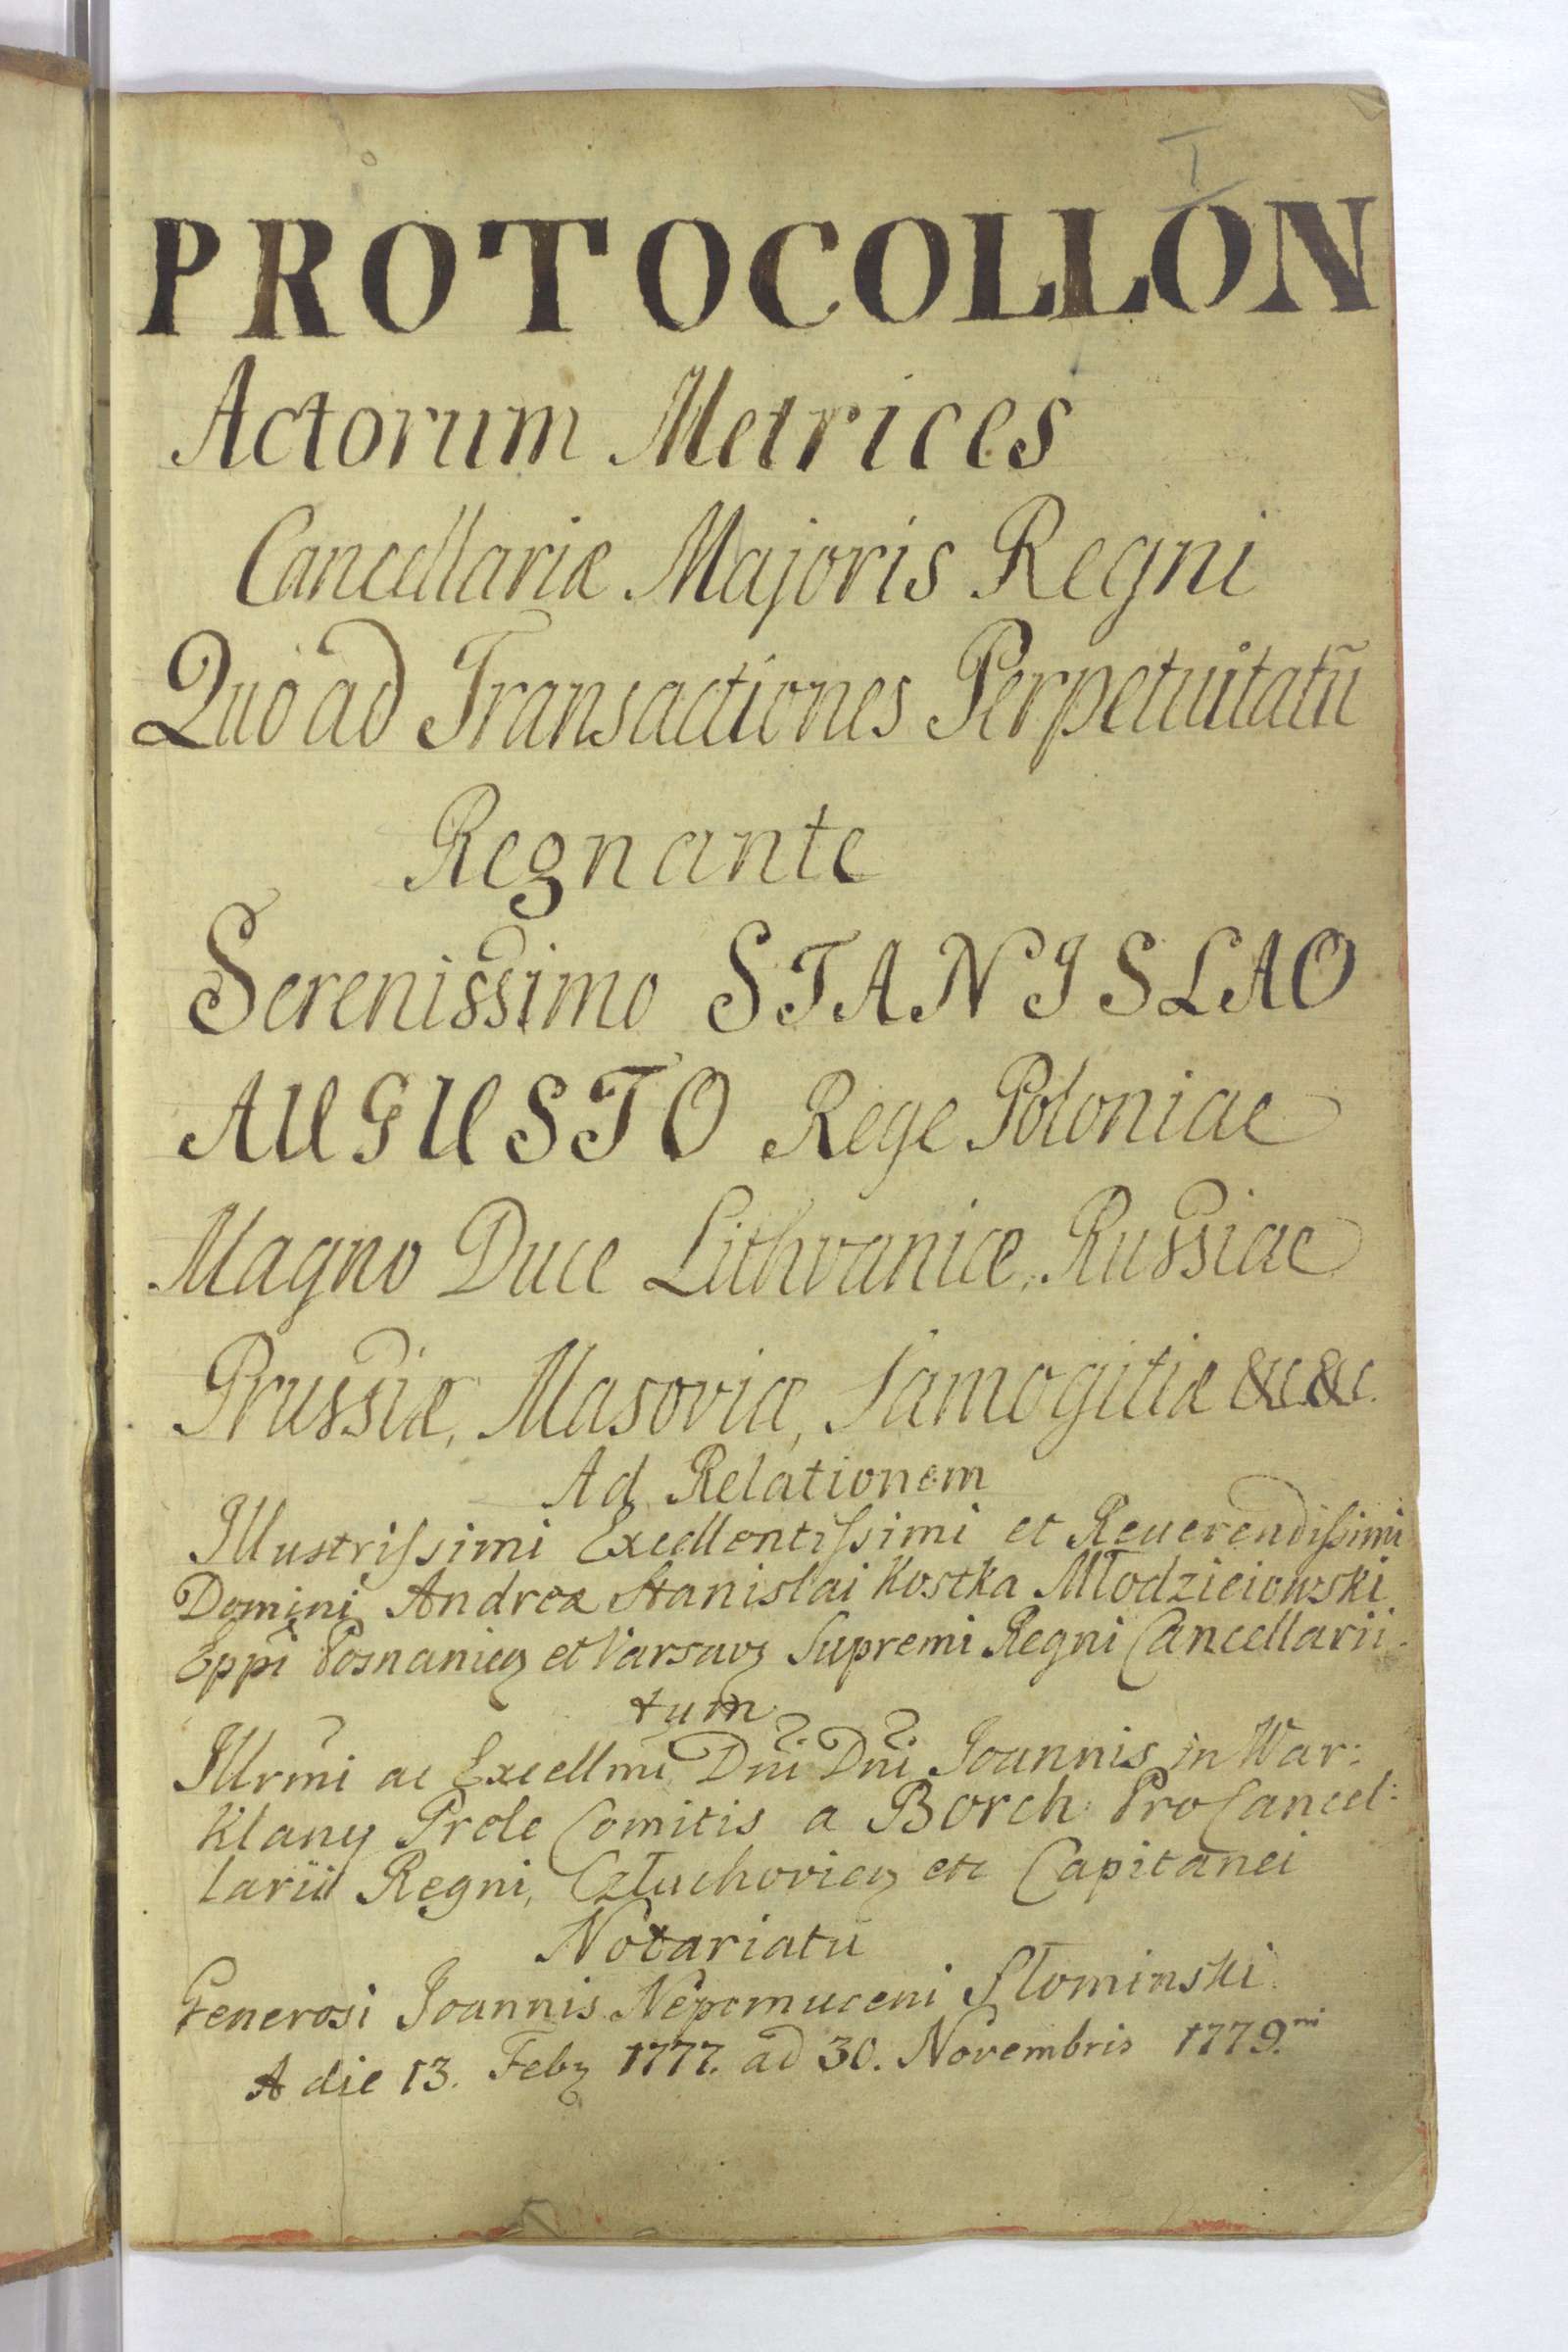 I
PROTOCOLLON
Actorum Metrices
Cancellariæ Majoris Regni
Quo ad Transactiones Perpetuitatũ
Regnante
Serenissimo STANISLAO
AUGUSTO Rege Poloniae
Magno Duce Lithvaniæ, Russiae
Prussiæ, Masoviæ, Samogitiæ &c &c.
Ad Relationem
Illustrissimi Excellentissimi et Reuerendissimi
Domini Andreæ Stanislai Kostka Młodzieiowski
Eppi Posnanien et Varsav Supremi Regni Cancellarii
tum
Illrmi ac Excellmi Dni Dni Joannis in War:
klany Prele Comitis a Borch ProCancel:
larii Regni, Człuchovien etc Capitanei
Notariatũ
Generosi Joannis Nepomuceni Słominski
A die 13. Feb 1777. ad 30. Novembris 1779.ni